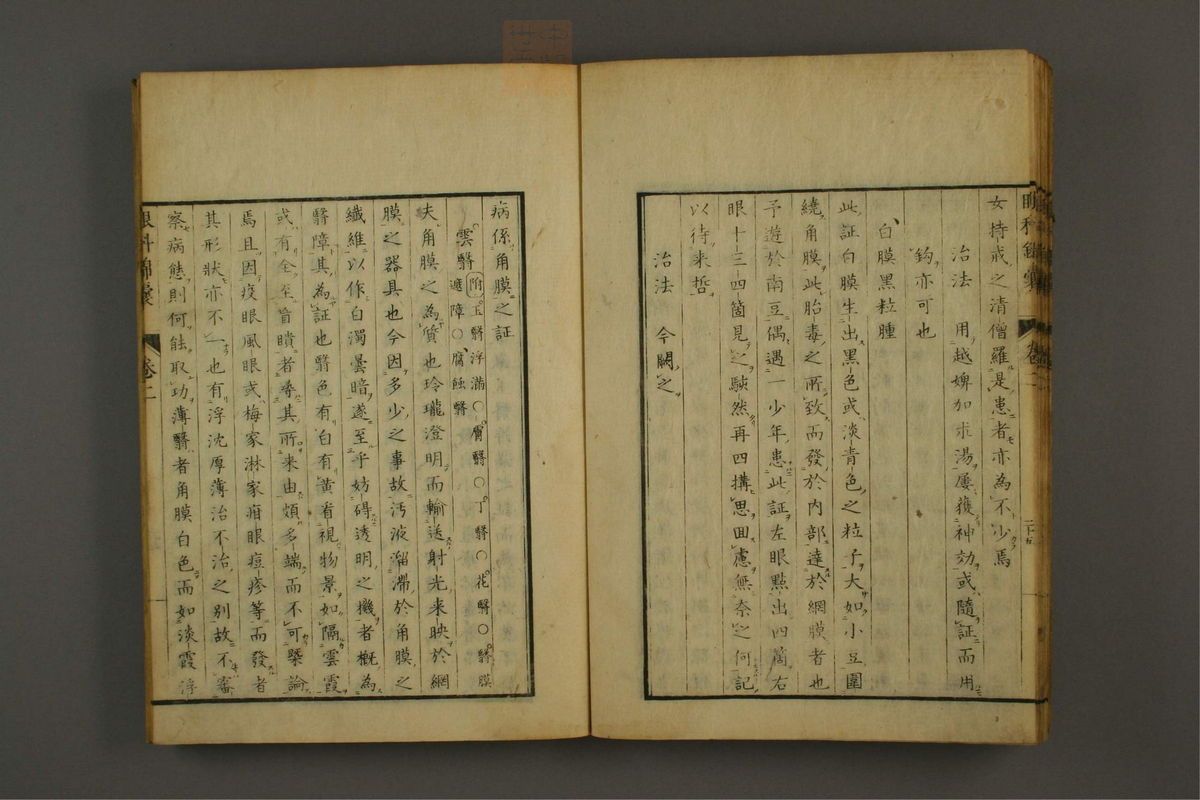 眼科錦囊 卷二
二十五
女持戒之清僧羅是患者亦為不少焉
治法 用越婢加朮湯屢獲神効或隨証而用
鈎亦可也
白膜黑粒腫
此証白膜生出黑色或淡青色之粒子大如小豆圍
繞角膜此胎毒之所致而發於内部達於網膜者也
予遊於南豆偶遇一少年患此証左眼點出四箇右
眼十三四箇見之駭然再四搆思回慮無奈之何記
以待来哲
治法 今闕之
病係角膜之証
雲翳 附 玉翳浮滿○膚翳○丁翳○花翳○翳膜
遮障○腐蝕翳
夫角膜之為質也玲瓏澄明而輸送射光来映於網
膜之器具也今因多少之事故汚液溜滯於角膜之
纖維以作白濁曇暗遂至乎妨碍透明之機者概為
翳障其為証也翳色有白有黄看視物景如隔雲霞
或有全至盲瞶者尋其所来由頗多端而不可槩論
焉且因疫眼風眼或梅家淋家疳眼痘疹等而發者
其形狀亦不一也有浮沈厚薄治不治之別故不審
察病態則何能取功薄翳者角膜白色而如淡霞浮
眼科錦囊 卷二